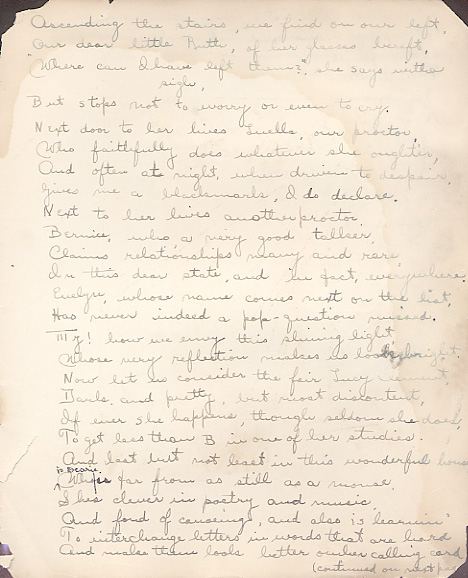 Ascending the stairs, we find on our left,
Our dear little Ruth, of her glasses bereft,
"Where can I have left them?", she says with a
sigh,
But stops not to worry or even to cry.
Next door to her lives Luella, our proctor,
Who faithfully does whatever she oughter,
And often at night, when driven to despair,
Gives me a blackmark, I do declare.
Next to her lives another proctor
Bernice, who, a very good talker,
Claims relationships many and rare,
In this dear state, and in fact, everywhere.
Evelyn, whose name comes next on the list,
Has never indeed a pop-question missed.
My! how we envy this shining light,
Whose very reflection makes us look bright.
Now let us consider the fair Lucy
Dark, and pretty, but most discontent,
If ever she happens, though seldom she does,
To get less than B in one of her studies.
And last but not least in this wonderful house
is Dearie
Who's far from as still as a mouse.
She's clever in poetry and music,
And fond of canoeing, and also is learnin'
To interchange letters in words that are hard
And make them look better on her calling card
(continued on next page